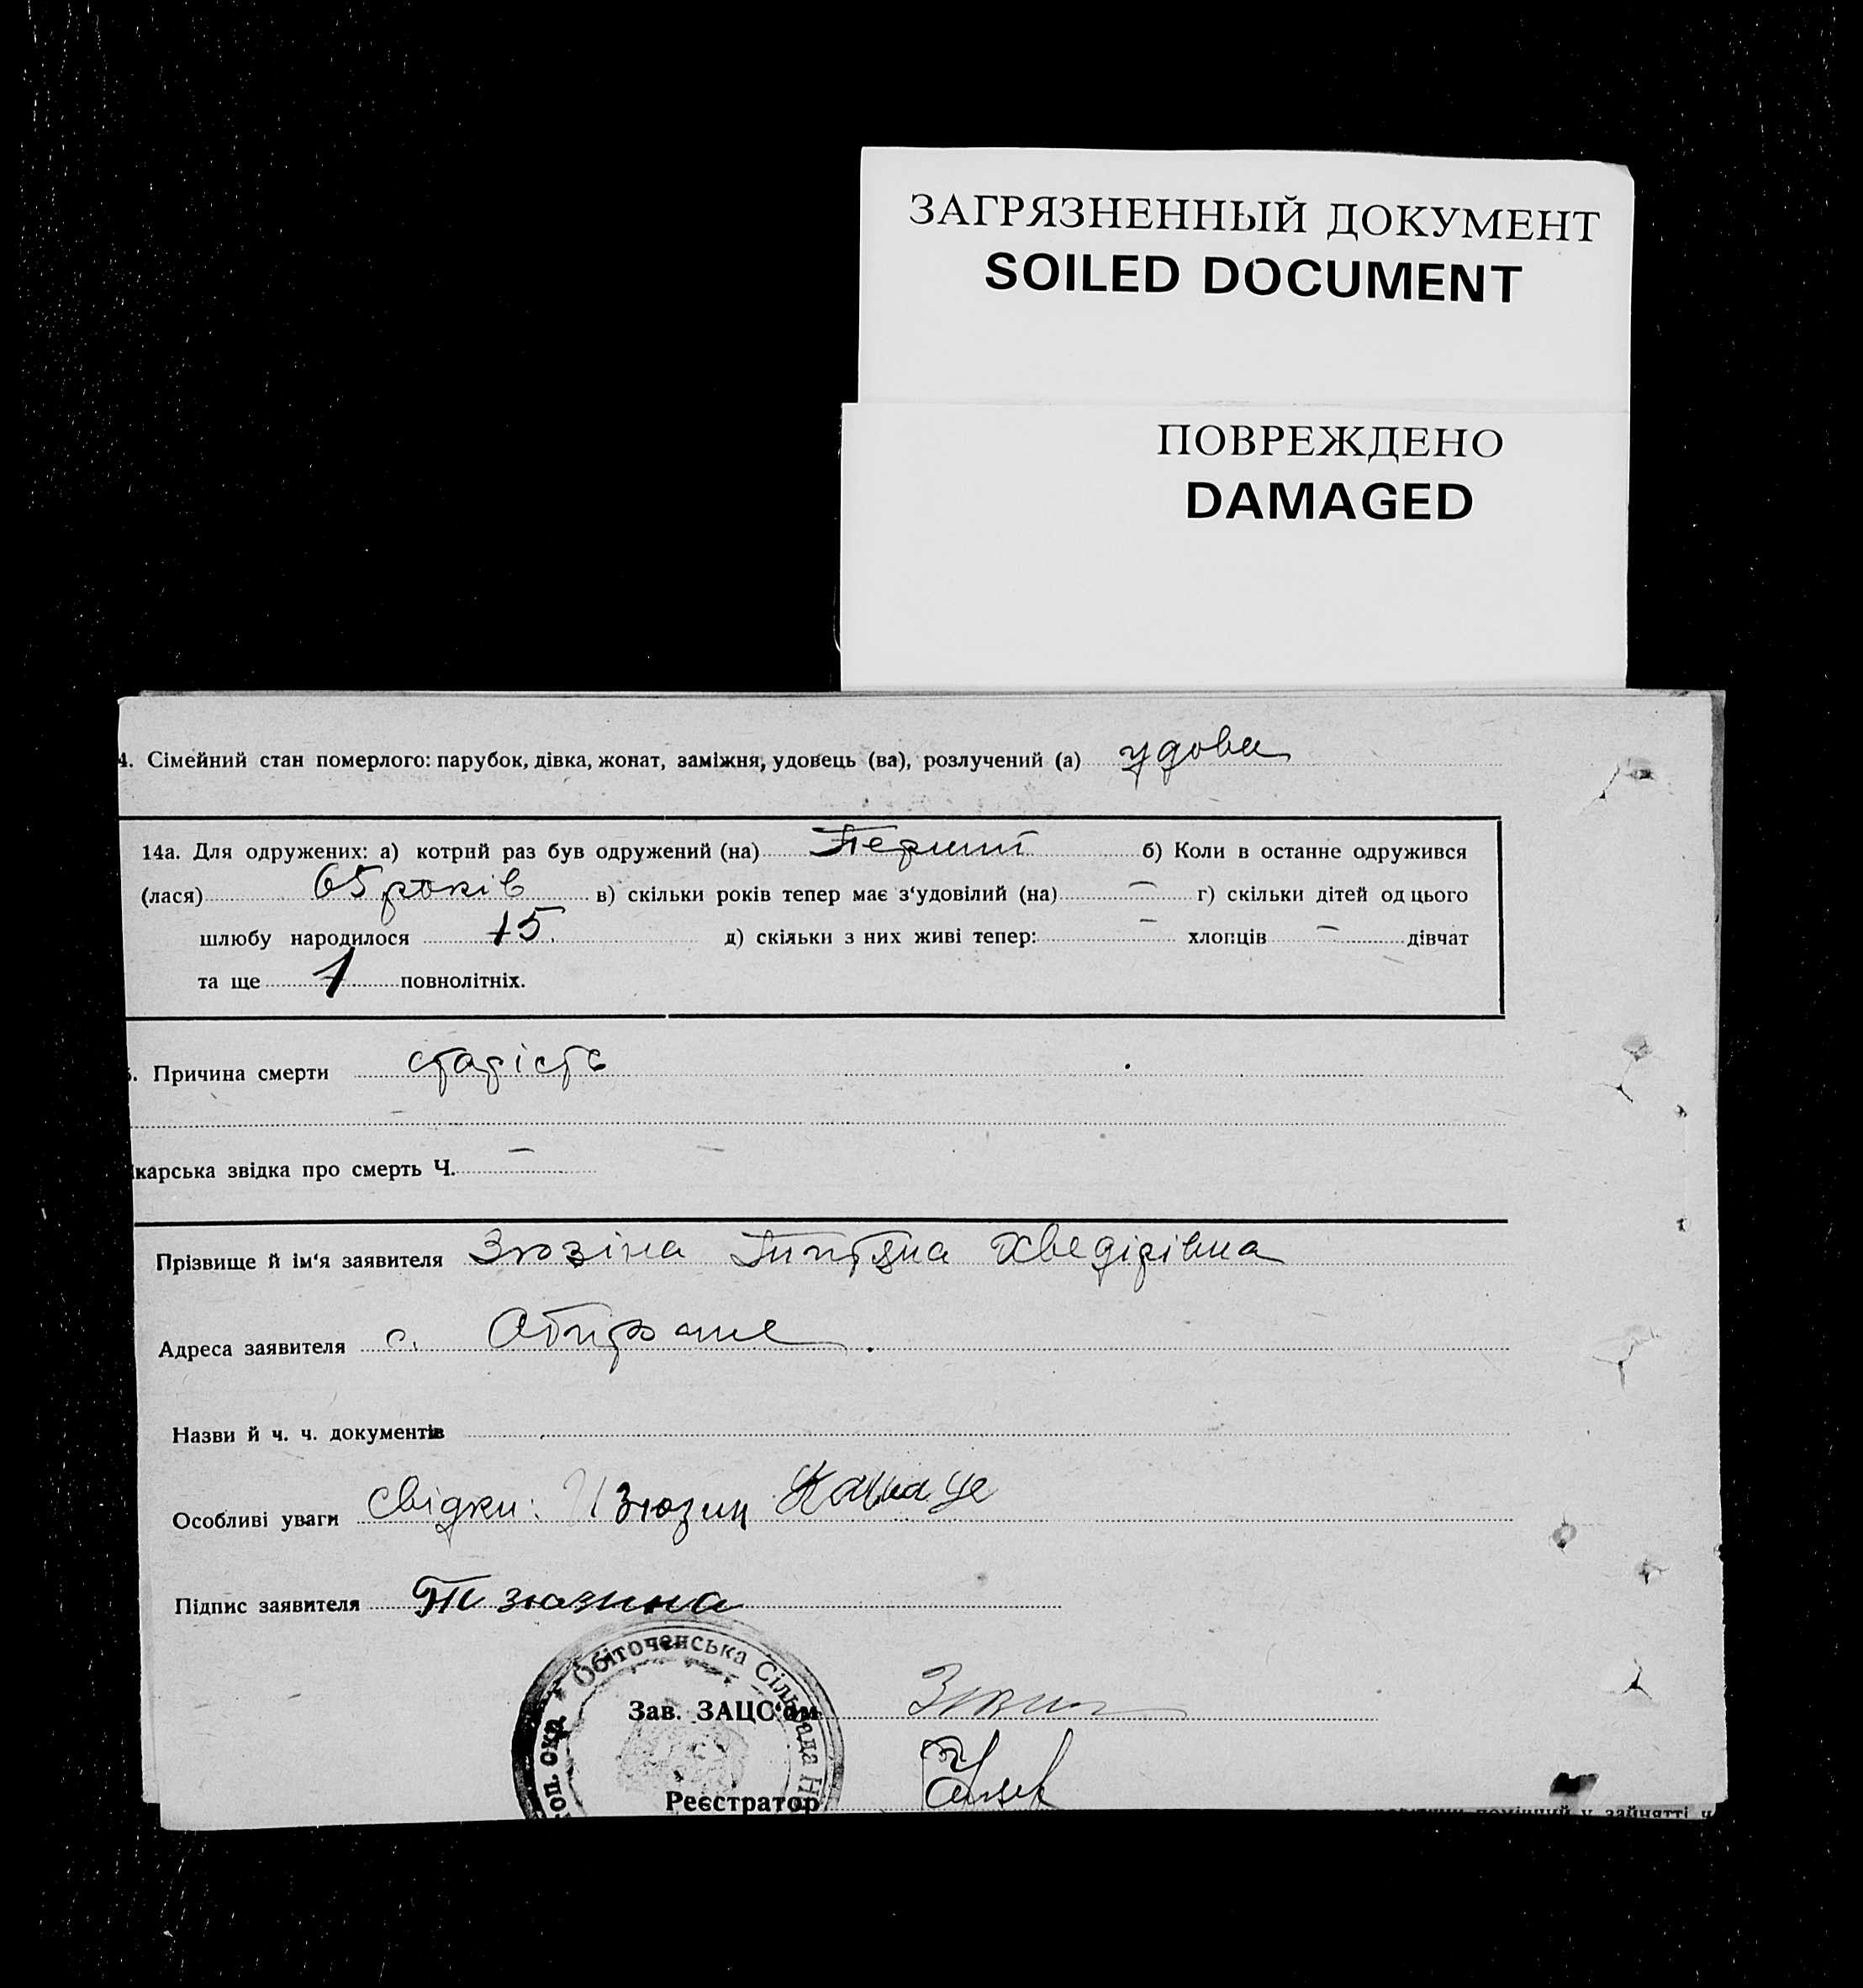 ЗАГРЯЗНЕННЫЙ ДОКУМЕНТ
SOILED DOCUMENT
ПОВРЕЖДЕНО
DAMAGED
4. Сімейний стан померлого: парубок, дівка, жонат, заміжня, удовець (ва), розлучений (а) удова
14а. Для одружених: а) котрий раз був одружений (на) Перший б) Коли в останне одружився
(лася) 65 років в) скільки років тепер має з‘удовілий (на) — г) скільки дітей од цього
шлюбу народилося 15 д) скільки з них живі тепер: — хлопців — дівчат
та ще 1 повнолітніх.
Причина смерти старість
карська звідка про смерть Ч. —
Прізвище й ім‘я заявителя Зюзіна Титяна Хведірівна
Адреса заявителя с. Обиточне
Назви й ч. ч. документів
Особливі уваги Свідки: Зюзин
Підпис заявителя Т Зюзина
Обіточенська Сільрада Н
оп. окр.
Зав. ЗАЦС‘ом
Реєстратор